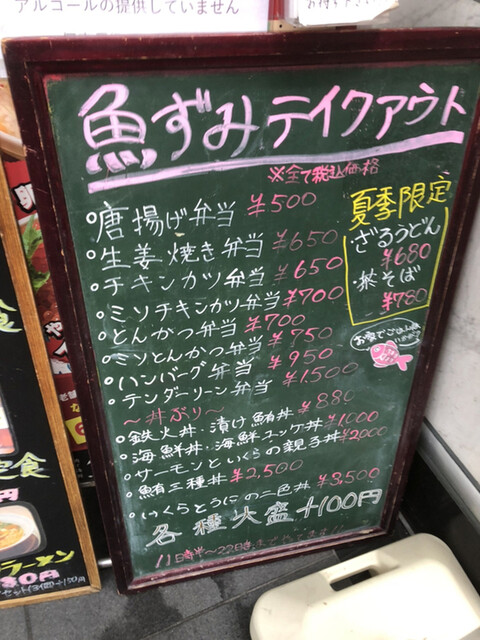 アルコールの提供していません
魚ずみテイクアウト
※全て税込価格
○唐揚げ弁当 ¥500
○生姜焼き弁当 ¥650
○チキンカツ弁当 ¥650
○ミソチキンカツ弁当 ¥700
○とんかつ弁当 ¥700
○ミソとんかつ弁当 ¥750
○ハンバーグ弁当 ¥950
○テンダーリーン弁当 ¥1,500
夏季限定
ざるうどん
¥680
茶そば
¥780
お家でごはん
〜丼ぶり〜
○鉄火丼・漬け鮪丼 ¥880
○海鮮丼・海鮮ユッケ丼 ¥1000
○サーモンといくらの親子丼 ¥2000
○鮪三種丼 ¥2,500
○いくらとうにの二色丼 ¥3,500
各種大盛+100円
11時半〜22時までやってます!!
定食
ラーメン